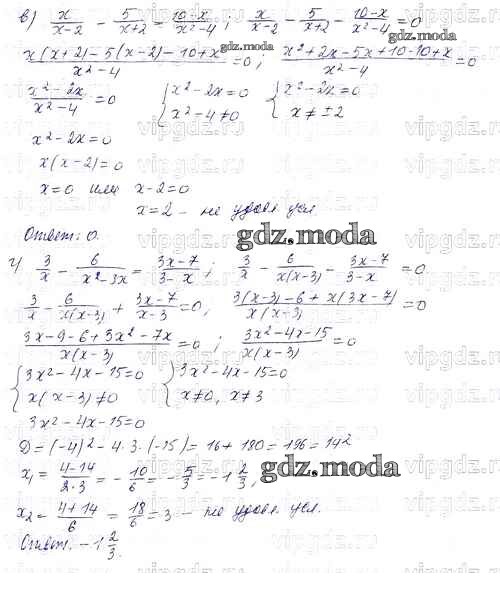 в) x/(x-2) - 5/(x+2) = (10-x)/(x²-4) ; x/(x-2) - 5/(x+2) - (10-x)/(x²-4) = 0
(x(x+2)-5(x-2)-10+x)/(x²-4) = 0 ; (x²+2x-5x+10-10+x)/(x²-4) = 0
(x²-2x)/(x²-4) = 0 { x²-2x=0 { x²-2x=0
x²-4≠0 x≠±2
x²-2x=0
x(x-2)=0
x=0 или x-2=0
x=2 - не удовл. усл.
Ответ: 0.
gdz.moda
г) 3/x - 6/(x²-3x) = (3x-7)/(3-x) ; 3/x - 6/(x(x-3)) - (3x-7)/(3-x) = 0
3/x - 6/(x(x-3)) + (3x-7)/(x-3) = 0, (3(x-3)-6+x(3x-7))/(x(x-3)) = 0
(3x-9-6+3x²-7x)/(x(x-3)) = 0 ; (3x²-4x-15)/(x(x-3)) = 0
{ 3x²-4x-15=0 { 3x²-4x-15=0
x(x-3)≠0 x≠0, x≠3
3x²-4x-15=0
D=(-4)²-4·3·(-15)=16+180=196=14²
x₁ = (4-14)/(2·3) = -10/6 = -5/3 = -1 2/3,
gdz.moda
x₂ = (4+14)/6 = 18/6 = 3 - не удовл. усл.
Ответ: -1 2/3.